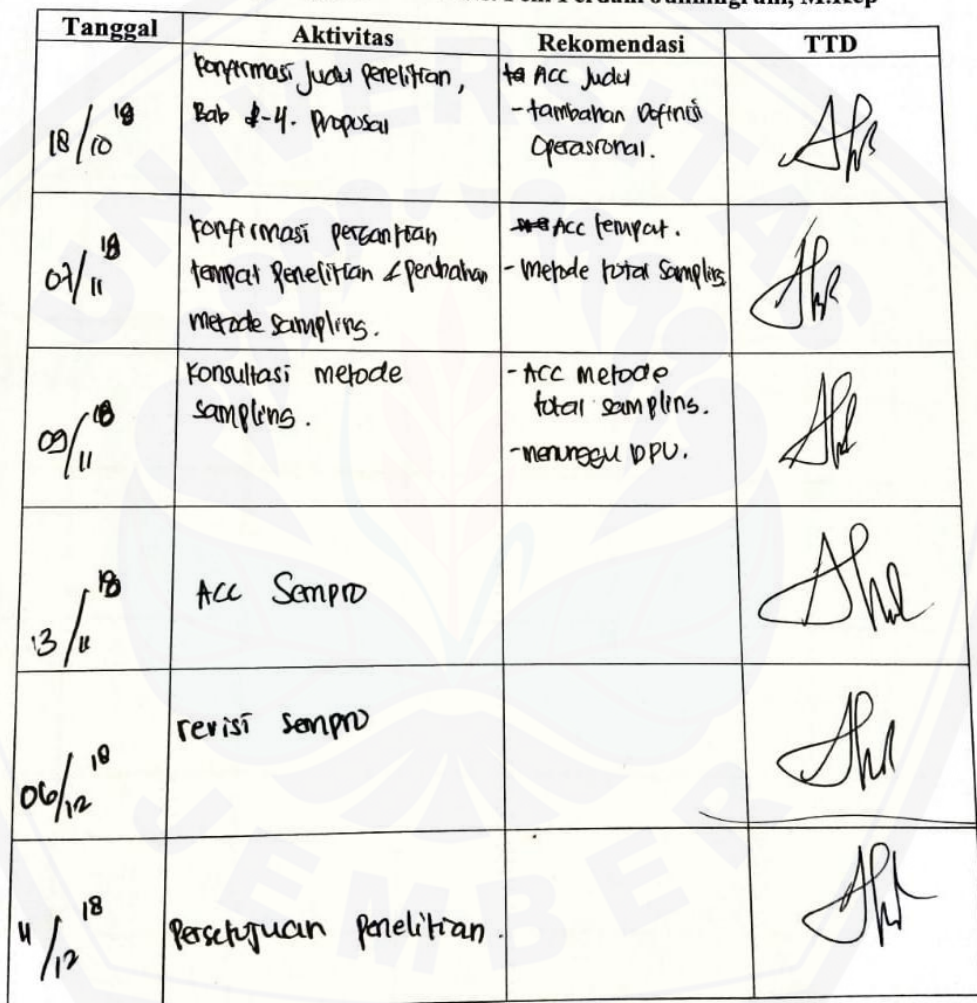 M.Kep
Tanggal Aktivitas Rekomendasi TTD
18/10 18
Konfirmasi Judul Penelitian,
Bab 1-4. Proposal
ACC Judul
- tambahan Definisi
Operasional.
07/11 18
Konfirmasi pergantian
tempat Penelitian & perubahan
metode sampling.
ACC tempat.
- metode total sampling
09/11 18
Konsultasi metode
sampling.
- ACC metode
total sampling.
- menunggu DPU.
13/11 18
ACC Sempro
06/12 18
revisi sempro
11/12 18
Persetujuan Penelitian.
UNIVERSITAS
JEMBER